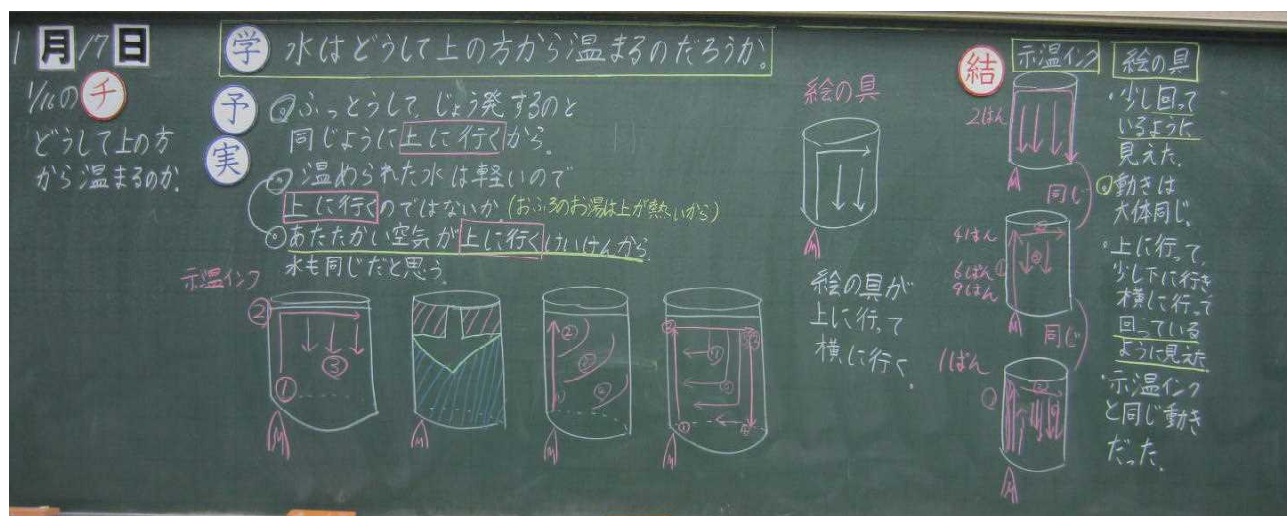 1月17日
1/16の チ
どうして上の方
から温まるのか.
学 水はどうして上の方から温まるのだろうか。
予
実
ふっとうして、じょう発するのと
同じように上に行くから.
温められた水は軽いので
上に行くのではないか.(おふろのお湯は上が熱いから)
あたたかい空気が上に行くけいけんから.
水も同じだと思う.
示温インク
② ① ③
絵の具
絵の具が
上に行って
横に行く.
結
示温インク
2はん
同じ
4はん
6ぱん
9はん
同じ
1ぱん
絵の具
・少し回って
いるように
見えた.
動きは
大体同じ.
・上に行って、
少し下に行き
横に行って
回っている
ように見えた
・示温インク
と同じ動き
だった.